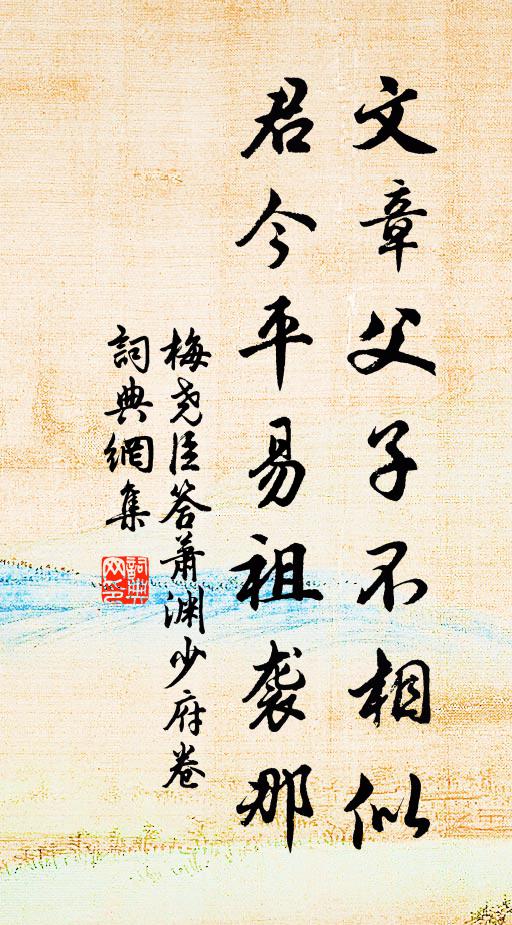 文章父子不相似
君今平易祖袭那
梅尧臣答萧渊少府卷
詞典網集
詞典网印